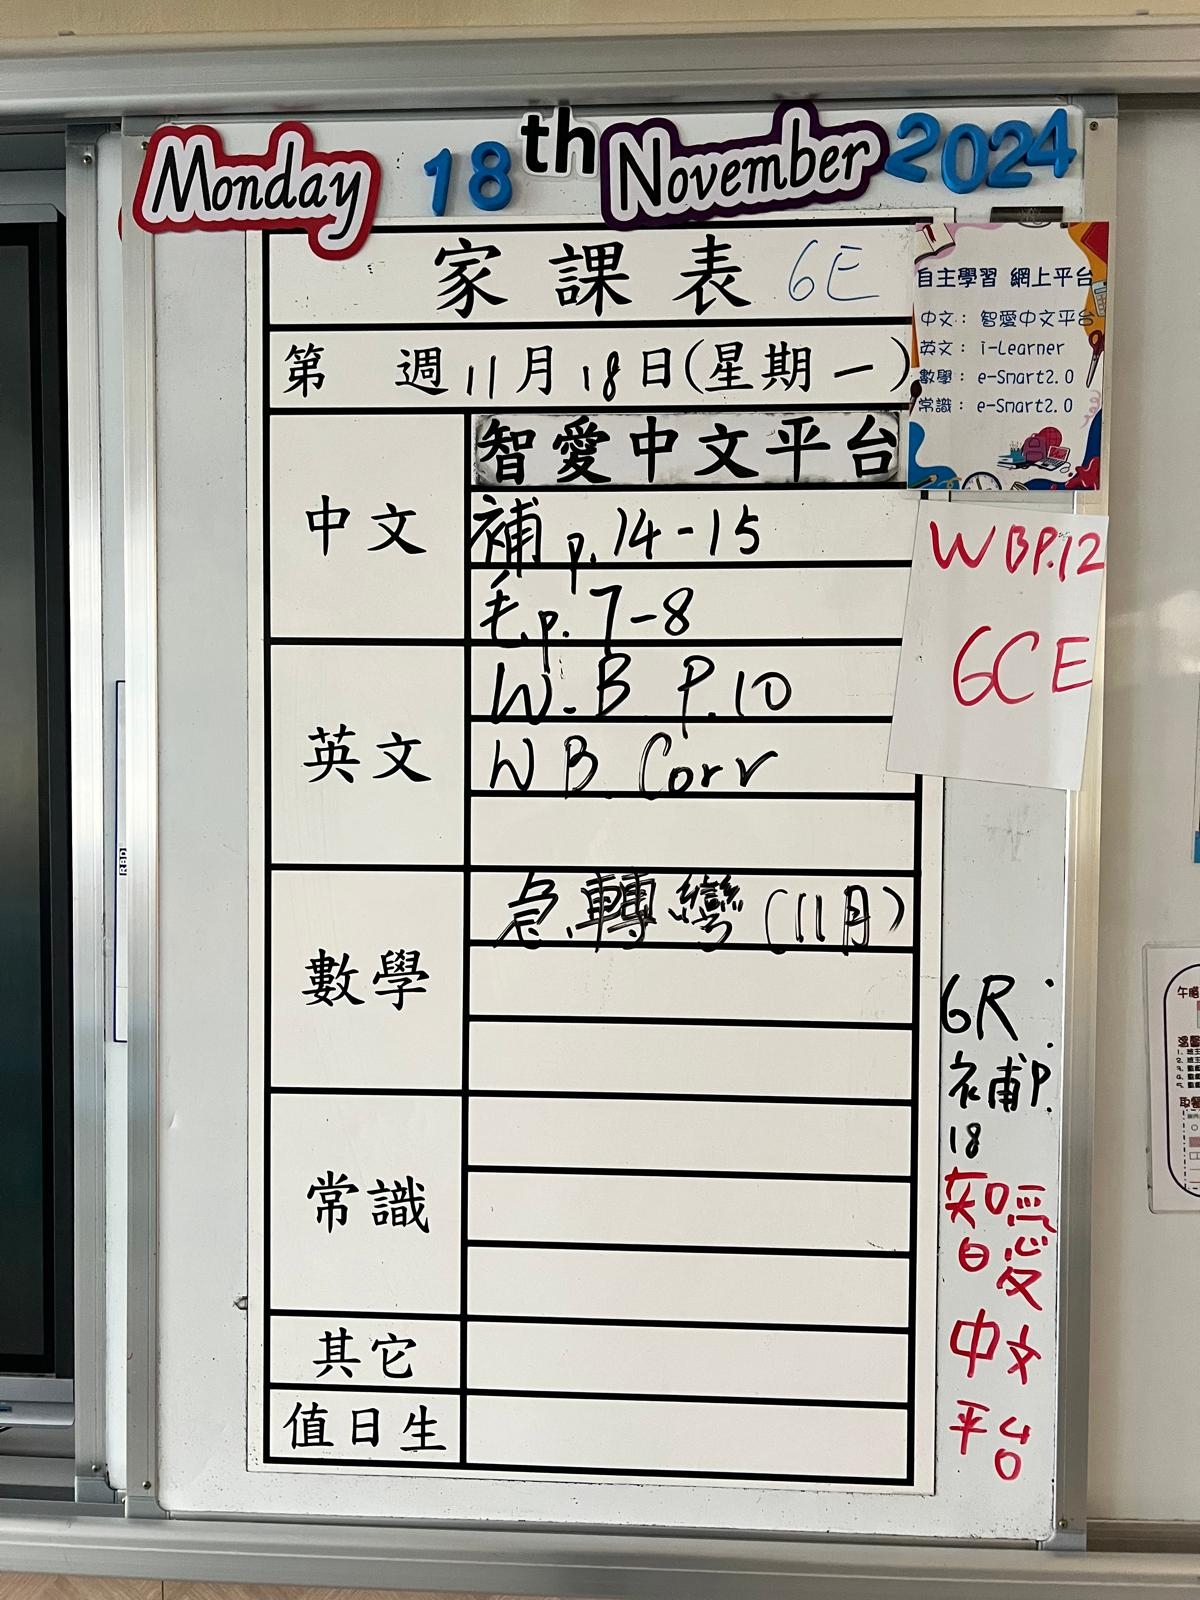 Monday 18th November 2024
家課表 6E
第 週 11月18日(星期一)
中文
智愛中文平台
補 p.14-15
毛 p.7-8
英文
W.B P.10
WB Corr
數學
急轉彎 (11月)
常識
其它
值日生
自主學習 網上平台
中文： 智愛中文平台
英文： i-Learner
數學： e-Smart2.0
常識： e-Smart2.0
WB P.12
6CE
6R：
補 P.
18
智愛
中文
平台